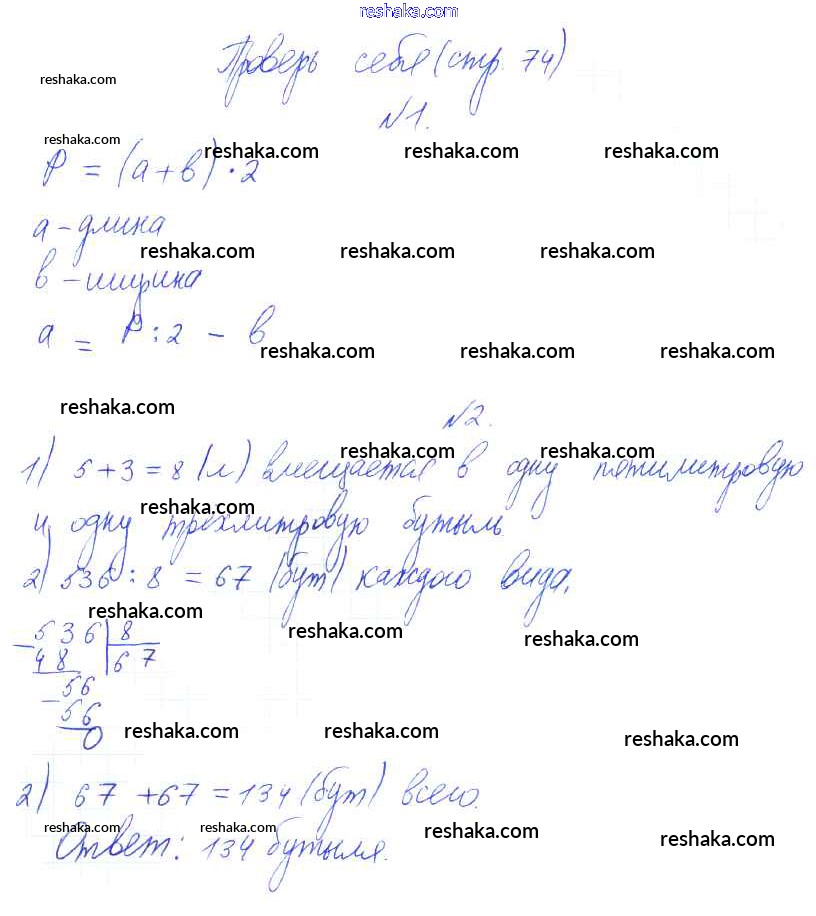 reshaka.com
Проверь себя (стр. 74)
reshaka.com
№1.
reshaka.com
reshaka.com reshaka.com reshaka.com
P = (a + b) · 2
a - длина
reshaka.com reshaka.com reshaka.com
b - ширина
a = P : 2 - b
reshaka.com reshaka.com reshaka.com
reshaka.com
№2.
reshaka.com reshaka.com
1) 5 + 3 = 8 (л) вмещается в одну пятилитровую
reshaka.com
и одну трехлитровую бутыль
2) 536 : 8 = 67 (бут) каждого вида.
reshaka.com
reshaka.com reshaka.com
- 536 | 8
48 67
- 56
56
0
reshaka.com reshaka.com reshaka.com
2) 67 + 67 = 134 (бут) всего.
reshaka.com reshaka.com reshaka.com reshaka.com
Ответ: 134 бутыля.